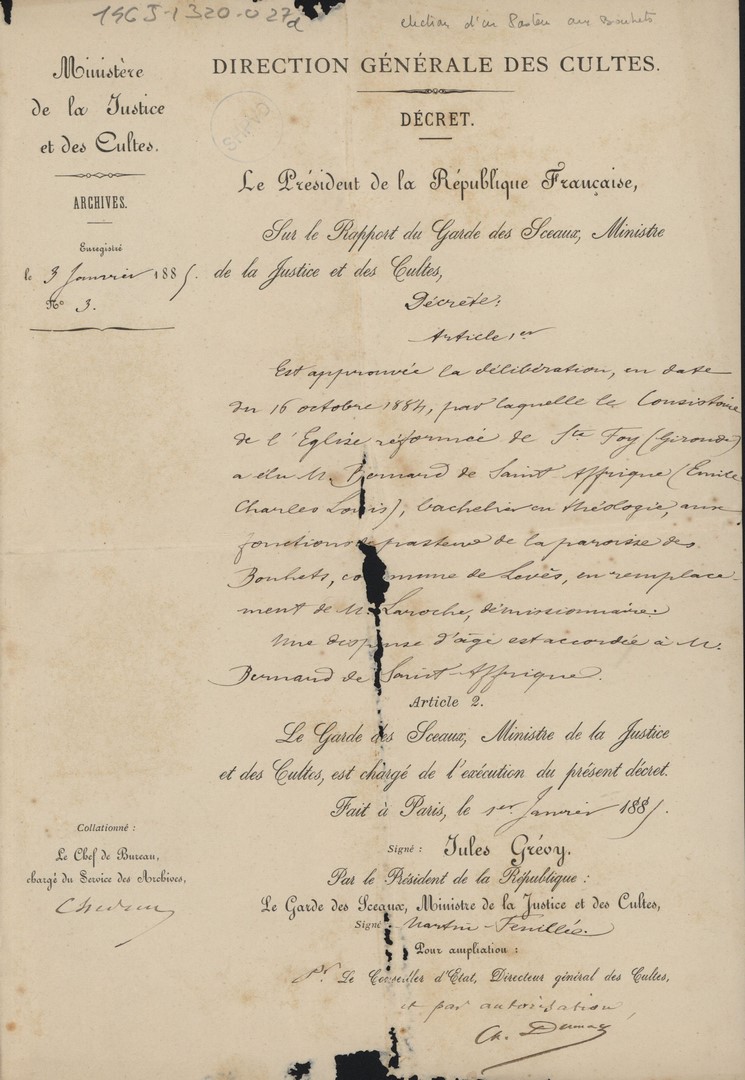 14GJ-1320-027d
élection d'un Pasteur aux Bouhets
Ministère
de la Justice
et des Cultes.
ARCHIVES.
Enregistré
le 3 Janvier 1885.
N° 3.
DIRECTION GÉNÉRALE DES CULTES.
DÉCRET.
Le Président de la République Française,
Sur le Rapport du Garde des Sceaux, Ministre
de la Justice et des Cultes,
Décrète:
Article 1er
Est approuvée la délibération, en date
du 16 octobre 1884, par laquelle le Consistoire
de l'Eglise réformée de Ste Foy (Gironde)
a élu M. Bernard de Saint-Affrique (Emile
Charles Louis), bachelier en théologie, aux
fonctions de pasteur de la paroisse des
Bouhets, commune de Levès, en remplace-
ment de M. Laroche, démissionnaire.
Une dispense d'âge est accordée à M.
Bernard de Saint-Affrique.
Article 2.
Le Garde des Sceaux, Ministre de la Justice
et des Cultes, est chargé de l'exécution du présent décret.
Fait à Paris, le 1er Janvier 1885.
Signé : Jules Grévy.
Par le Président de la République :
Le Garde des Sceaux, Ministre de la Justice et des Cultes,
Signé Martin-Feuillée.
Pour ampliation :
Pr. Le Conseiller d'Etat, Directeur général des Cultes,
et par autorisation,
Ch. Dumay
Collationné :
Le Chef de Bureau,
chargé du Service des Archives,